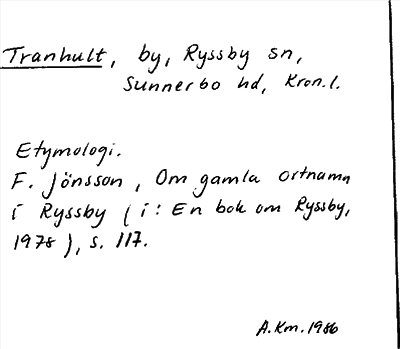 Tranhult, by, Ryssby sn,
Sunnerbo hd, Kron.l.
Etymologi.
F. Jönsson, Om gamla ortnamn
i Ryssby (i: En bok om Ryssby,
1978), s. 117.
A.Km. 1986